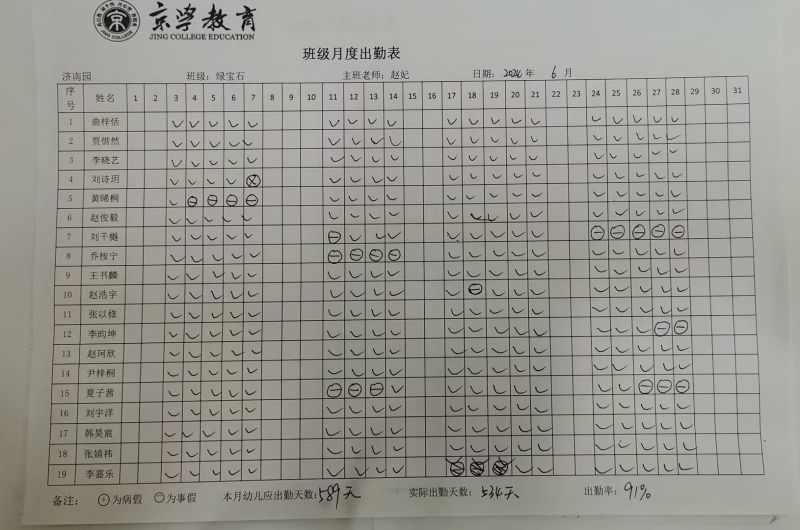 京学教育
JING COLLEGE EDUCATION
班级月度出勤表
济南园 班级：绿宝石 主班老师：赵妃 日期：2024年 6 月
序号 姓名 1 2 3 4 5 6 7 8 9 10 11 12 13 14 15 16 17 18 19 20 21 22 23 24 25 26 27 28 29 30 31
1 曲梓恬
2 贾惜然
3 李晓艺
4 刘诗玥
5 黄晞桐
6 赵俊毅
7 刘千樾
8 乔桉宁
9 王书麟
10 赵浩宇
11 张以修
12 李昀坤
13 赵珂欣
14 尹梓桐
15 夏子茜
16 刘宇洋
17 韩昊宸
18 张婧祎
19 李嘉乐
备注： ⊕为病假 ⊖为事假 本月幼儿应出勤天数：589天 实际出勤天数：534天 出勤率：91%